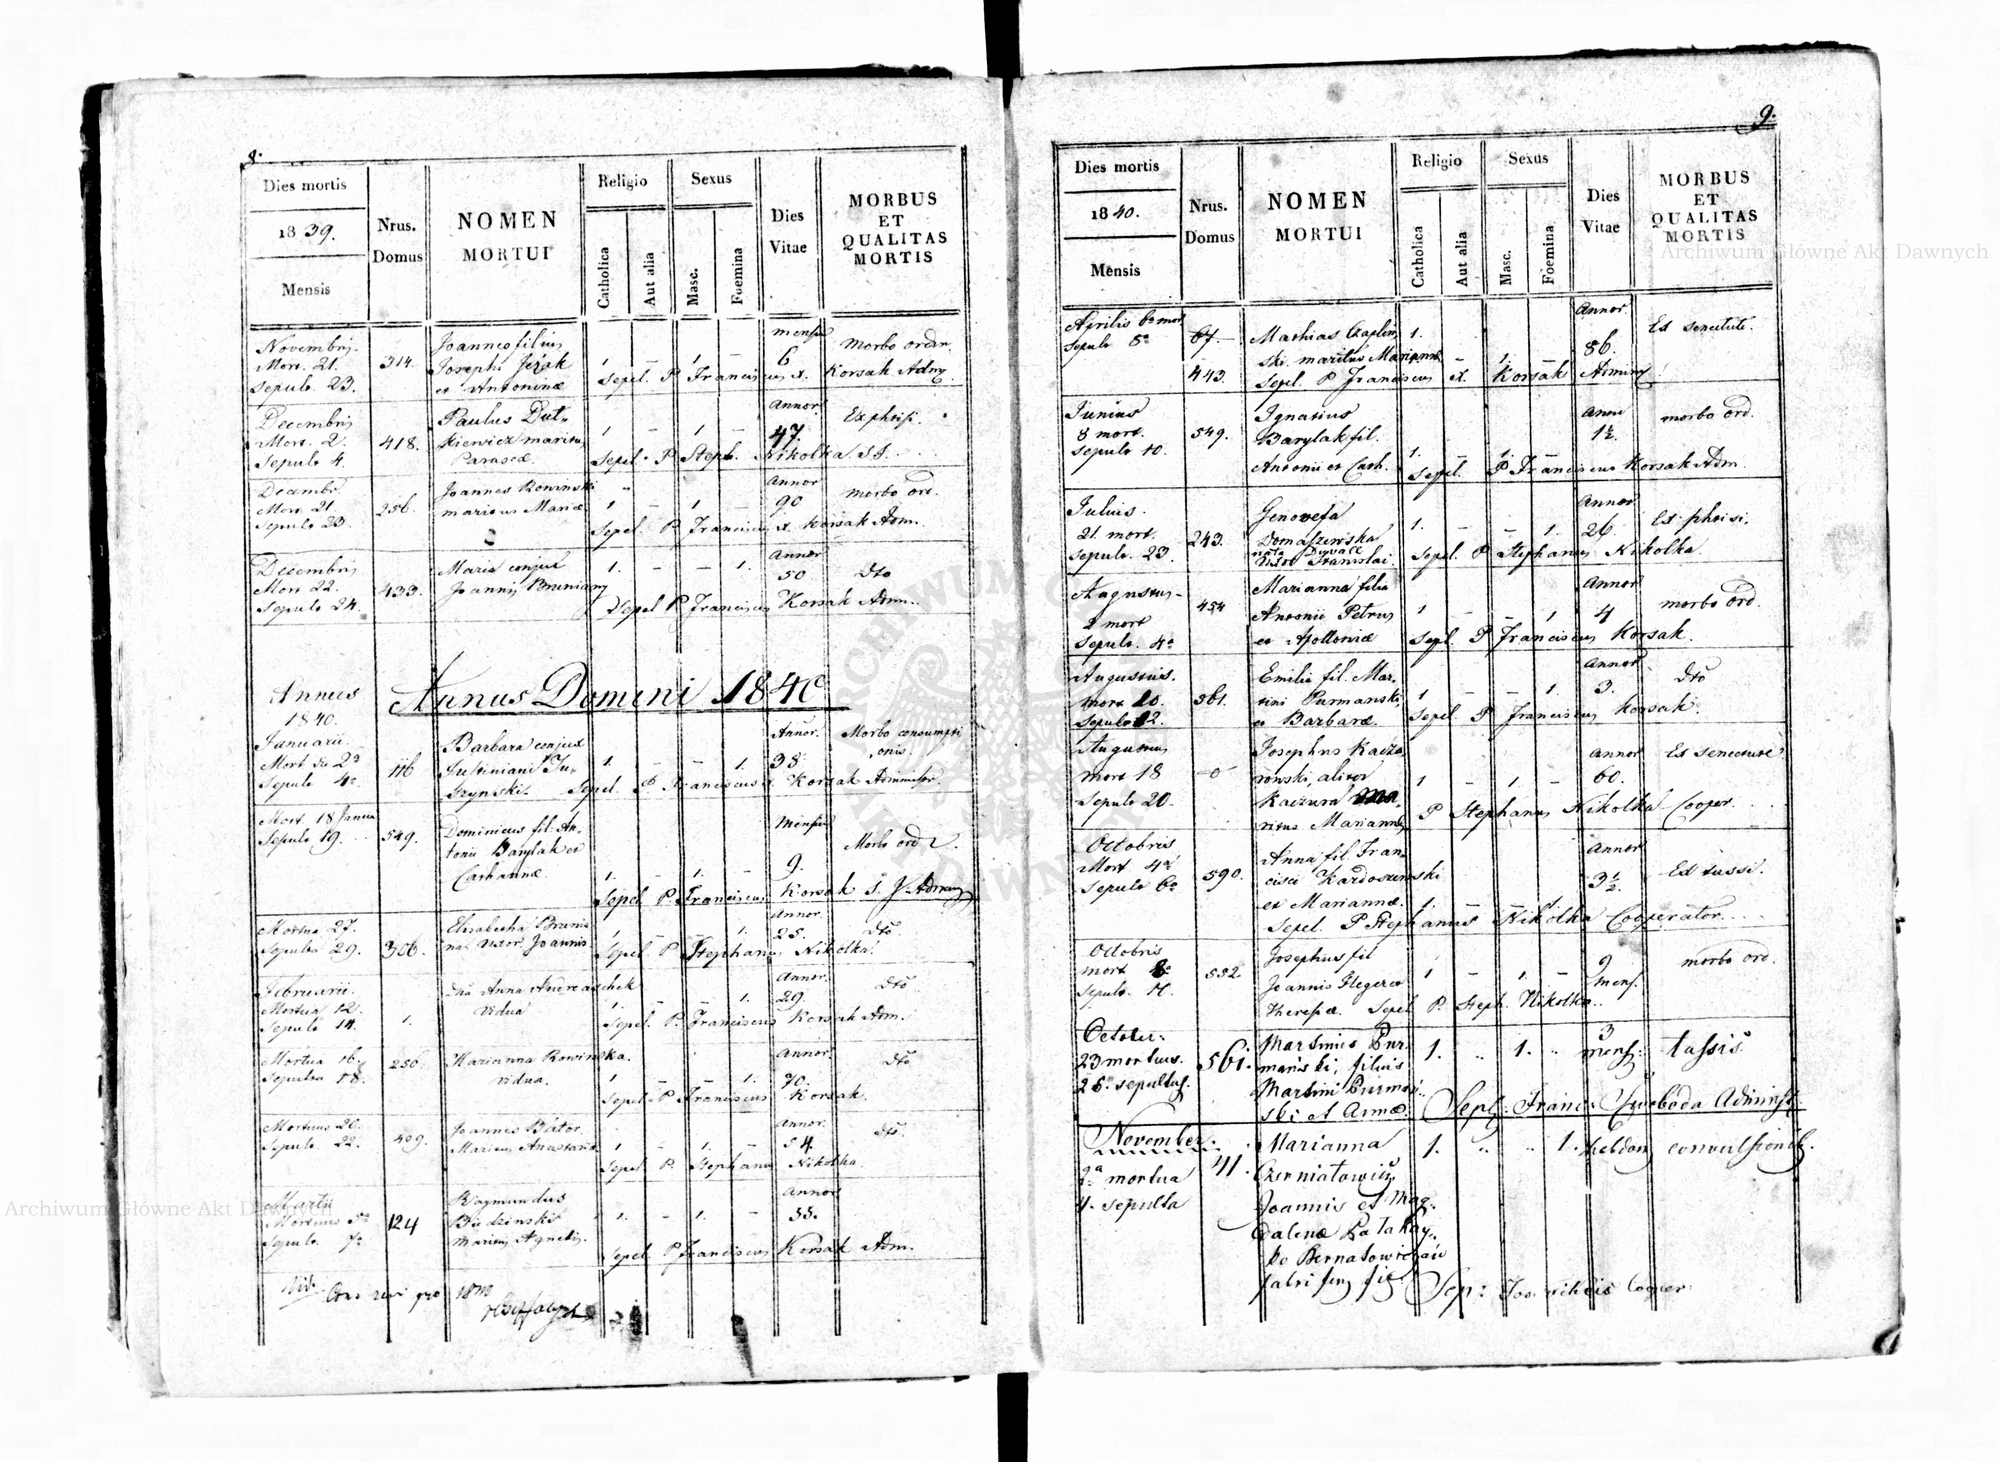 8.
Dies mortis
1839.
Mensis
Nrus.
Domus
NOMEN
MORTUI
Religio
Catholica
Aut alia
Sexus
Masc.
Foemina
Dies
Vitae
MORBUS
ET
QUALITAS
MORTIS
Novembris
Mort. 21.
Sepult. 23.
314.
Joannes filius
Josephi Jeżak
et Antoninæ
1. – 1. –
mensis
6
Morbo ordin.
Sepel. P Franciscus X. Korsak Adm.
Decembris
Mort. 2.
Sepult. 4.
418.
Paulus Dut-
kiewicz maritus
Parascæ.
1 – 1 –
Annor.
47.
Ex phtisi.
Sepel. P Steph. Nikolka
Decembr.
Mort 21.
Sepult 23.
256.
Joannes Rowinski
maritus Mariæ
1 – 1 –
Annor
90
morbo ord.
Sepel. P. Franciscus X. Korsak Adm.
Decembris
Mort 22.
Sepult 24.
433.
Maria conjux
Joannis
1. – – 1.
Annor
50
dto
Sepel P. Franciscus Korsak Adm.
Annus
1840.
Annus Domini 1840
Januarii
Mort 2a
Sepult 4a
116
Barbara conjux
Justiniani Ju-
szynski
1. – – 1.
Annor.
38
Morbo consumpti
onis.
Sepel. P Franciscus X. Korsak Administr.
Mort 18 Janua
Sepult 19.
549.
Dominicus fil. An-
tonii Barylak et
Catharinæ
1. – 1. –
Mensis
9.
Morbo ord
Sepel P. Franciscus Korsak
Mortua 27.
Sepulta 29.
306.
Elisabetha
uxor Joannis
1 – – 1.
Annor.
25.
dto
Sepel P. Stephanus Nikolka.
Februarii.
Mortua 12.
Sepult 14.
1.
Anna
Vidua
1. – – 1.
Annor.
29.
dto
Sepel. P. Franciscus Korsak Adm.
Mortua 16.
Sepulta 18.
256.
Marianna Rowinska.
vidua.
1 – – 1.
Annor.
70.
dto
Sepel P Franciscus Korsak.
Mortuus 20.
Sepult. 22.
409.
Joannes Bator
Maritus Anastasiæ
1 – 1. –
Annor.
54.
dto.
Sepel P. Stephanus Nikolka.
Martii
Mortuus 5a
Sepult. 7a
124
Raymundus
Budzinski
Maritus Agnetis.
1. – 1. –
Annor
55.
Sepel P Franciscus Korsak Adm.
9.
Dies mortis
1840.
Mensis
Nrus.
Domus
NOMEN
MORTUI
Religio
Catholica
Aut alia
Sexus
Masc.
Foemina
Dies
Vitae
MORBUS
ET
QUALITAS
MORTIS
Aprilis 6a mort
Sepult 8a
67.
443.
Mathias Czaplin
ski maritus Mariannæ
1. – 1. –
Annor.
86.
Ex senectute.
Sepel. P Franciscus X. Korsak Admin
Junius
8 mort.
Sepult 10.
549.
Ignatius
Barylak fil.
Antonii et Cath.
1. – 1. –
Anni
1½.
morbo ord.
Sepel. P Franciscus Korsak Adm.
Julius.
21 mort.
Sepult. 23.
243.
Genovefa
Domaszewska
nata
Uxor Stanislai.
1. – – 1.
Annor
26
Ex phtisi.
Sepel. P Stephanus Nikolka.
Augustus
2 mort
Sepult. 4a
454
Marianna filia
Antonii Petrus
et Apolloniæ
1 – – 1
Annor
4
morbo ord.
Sepel. P Franciscus Korsak.
Augustus.
mort 10.
Sepult 12.
561.
Emilia fil. Mar-
tini Purmanski
et Barbaræ.
1 – – 1.
Annor
3.
dto
Sepel P Franciscus Korsak.
Augustus
mort 18
Sepult 20.
0
Josephus Kacza
rowski, aliter
Kaczur
ritus Mariannæ
1 – 1 –
Annor
60.
Ex senectute
P Stephanus Nikolka Cooper.
Octobris
Mort 4a
Sepult 6a
590.
Anna fil. Fran-
cisci Kardoszewski
et Mariannæ.
1. – – 1.
Annor
3½.
Ex tussi.
Sepel. P Stephanus Nikolka Cooperator.
Octobris
mort 8a
Sepult.
552
Josephus fil
Joannis
Theresiæ.
1 – 1 –
9
mens.
morbo ord.
Sepel P. Steph. Nikolka.
October:
23 mortuus.
25. sepultus.
561.
Martinus Pur-
manski, filius
Martini Purman-
ski et Annæ.
1. " 1. "
3
mens:
tussis
Sepl: Franc: Swoboda Administ
November.
2a mortua
4. sepulta
41.
Marianna
Joannis et Mag-
dalenæ
de
fabri
1. " " 1.
hebdom
convulsionib.
Sep: Cooper